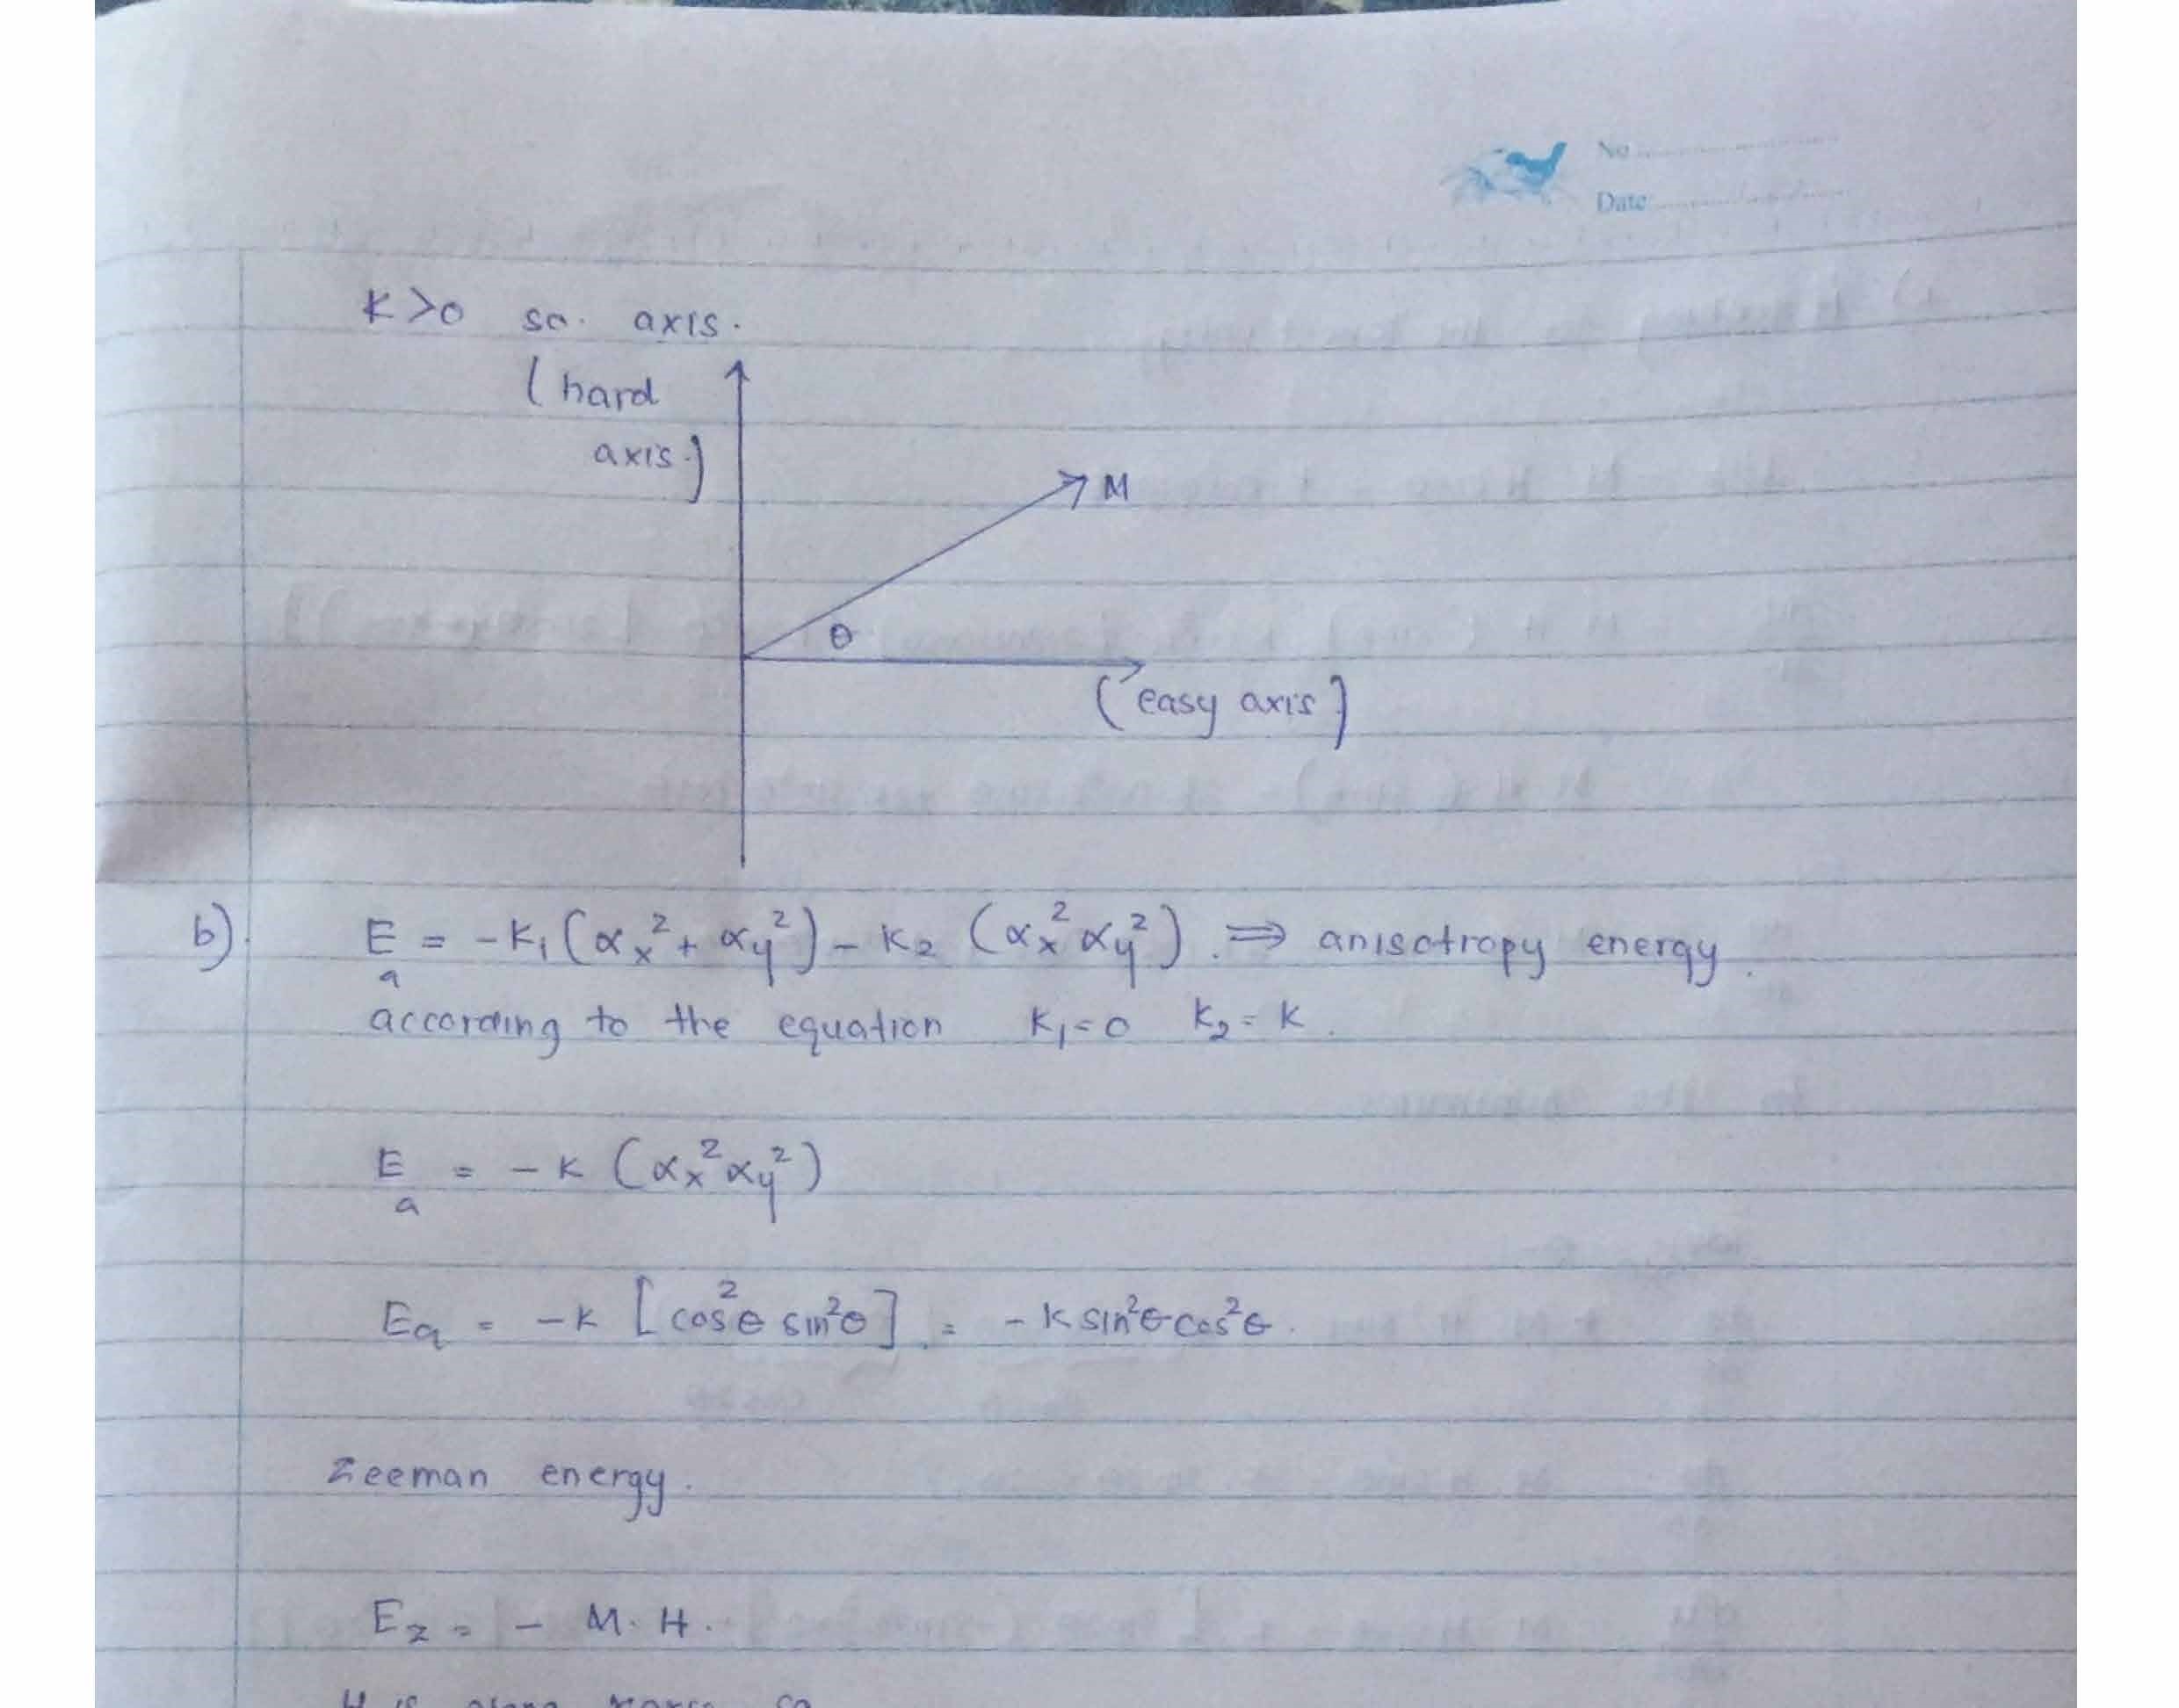 No
Date
K>0 so. axis.
(hard
axis.)
M
θ
(easy axis)
b) E_a = -K₁(αₓ² + α_y²) - K₂ (αₓ²α_y²). ⇒ anisotropy energy.
according to the equation K₁=0 K₂=K.
E_a = -K (αₓ²α_y²)
E_a = -K [cos²θ sin²θ] = -K sin²θ cos²θ.
Zeeman energy.
E_z = - M.H.
H is along